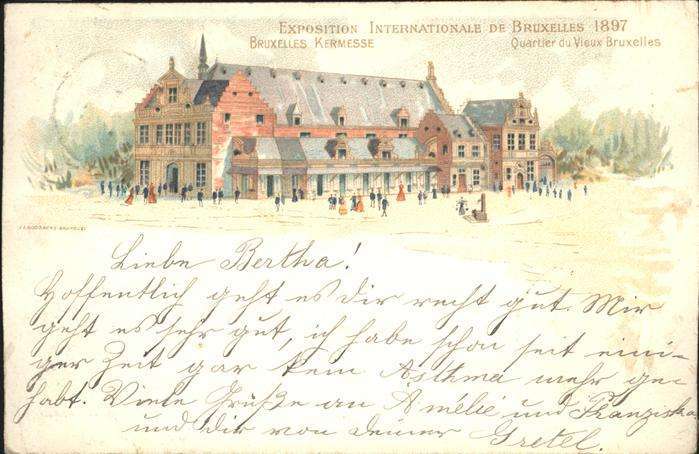 EXPOSITION INTERNATIONALE DE BRUXELLES 1897
BRUXELLES KERMESSE
Quartier du Vieux Bruxelles
Liebe Bertha!
Hoffentlich geht es dir recht gut. Mir
geht es sehr gut, ich habe schon seit eini-
ger Zeit gar kein Asthma mehr ge-
habt. Viele Grüße an Amélie und Franziska
und dir von deiner Gretel.